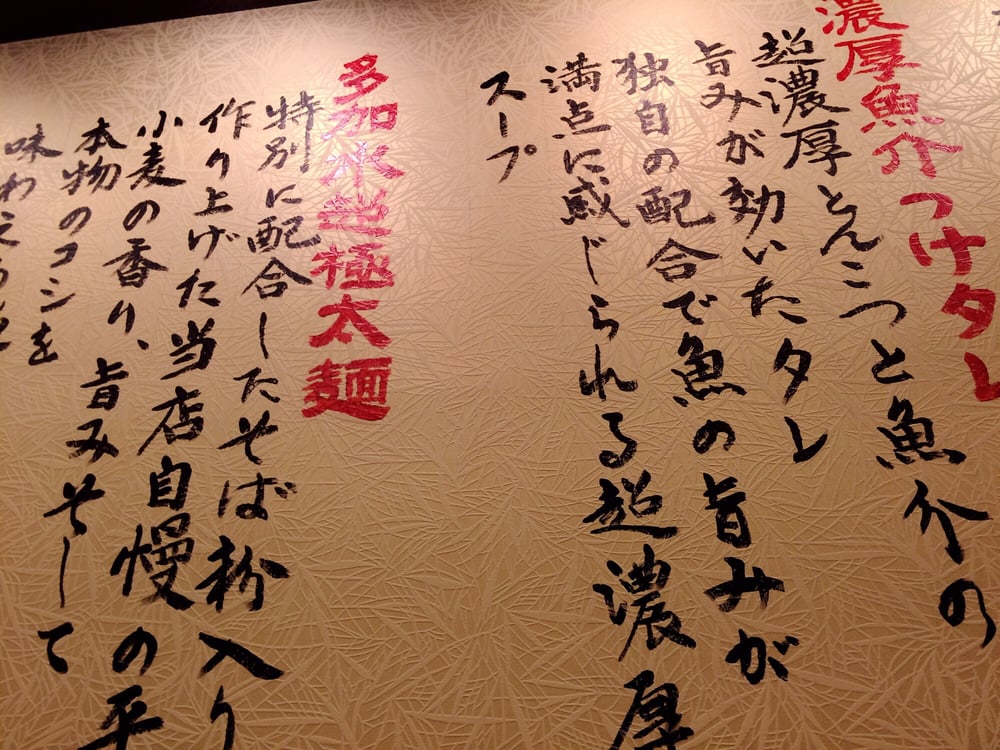 濃厚魚介つけタレ
超濃厚とんこつと魚介の
旨みが効いたタレ
独自の配合で魚の旨みが
満点に感じられる超濃厚
スープ
多加水超極太麺
特別に配合したそば粉入り
作り上げた当店自慢の平
小麦の香り、旨みそして
本物のコシを
味わえ